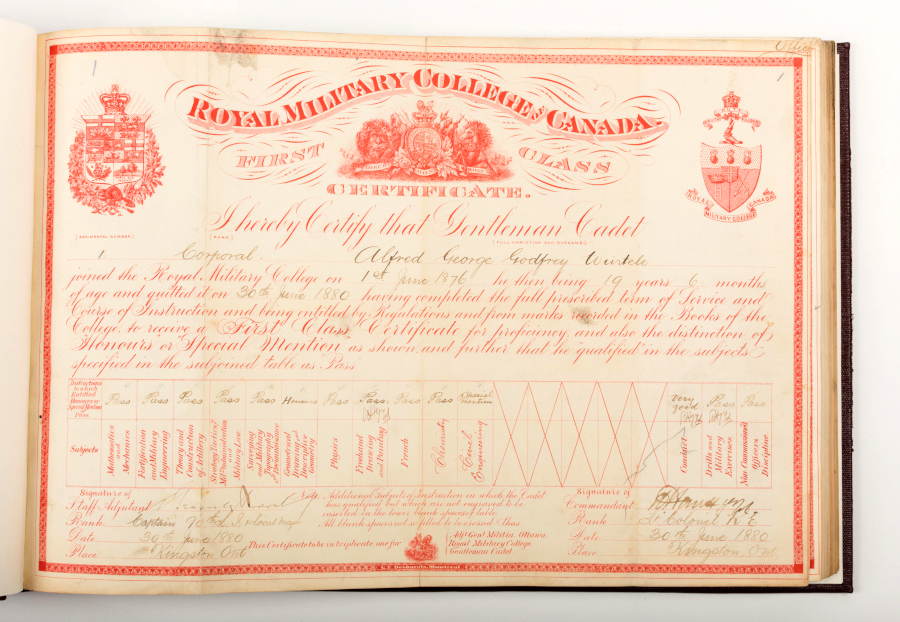 Office
1
1
ROYAL MILITARY COLLEGE OF CANADA.
FIRST CLASS
CERTIFICATE.
ROYAL MILITARY COLLEGE CANADA
I hereby Certify that Gentleman Cadet
(REGIMENTAL NUMBER.) (RANK.) (FULL CHRISTIAN AND SURNAME.)
1 Corporal. Alfred George Godfrey Wurtele
joined the Royal Military College on 1st June 1876 he then being 19 years 6 months
of age and quitted it on 30th June 1880 having completed the full prescribed term of Service and
Course of Instruction and being entitled by Regulations and from marks recorded in the Books of the
College, to receive a "First" Class Certificate for proficiency, and also the distinction of
"Honours" or "Special Mention" as shown, and further that he "qualified" in the subjects
specified in the subjoined table as "Pass"
Distinctions to which Entitled Honours or Special Mention or Pass
Pass Pass Pass Pass Pass Honours Pass Pass Pass Pass Special mention Very good Pass Pass
Subjects
Mathematics and Mechanics
Fortification and Military Engineering
Theory and Construction of Artillery
Military Administration and Military Law
Surveying and Military Topography
Geometrical Drawing and Descriptive Geometry
Physics
Freehand Drawing and Painting
French
Chemistry
Civil Engineering
Conduct
Drills and Military Exercises
Non Commissioned Officers Discipline
Signature of
Staff Adjutant
Rank Captain
Date 30th June 1880
Place Kingston Ont
Note Additional Subjects of Instruction in which the Cadet
has qualified but which are not required to be
noted in the lower blank spaces of table
All blank spaces not so filled to be crossed thus
This Certificate to be in triplicate one for
Adjt. Genl. Militia Ottawa
Royal Military College
Gentleman Cadet
Signature of
Commandant
Rank Lt Colonel R.E
Date 30th June 1880
Place Kingston Ont.
G.E. Desbarats, Montreal